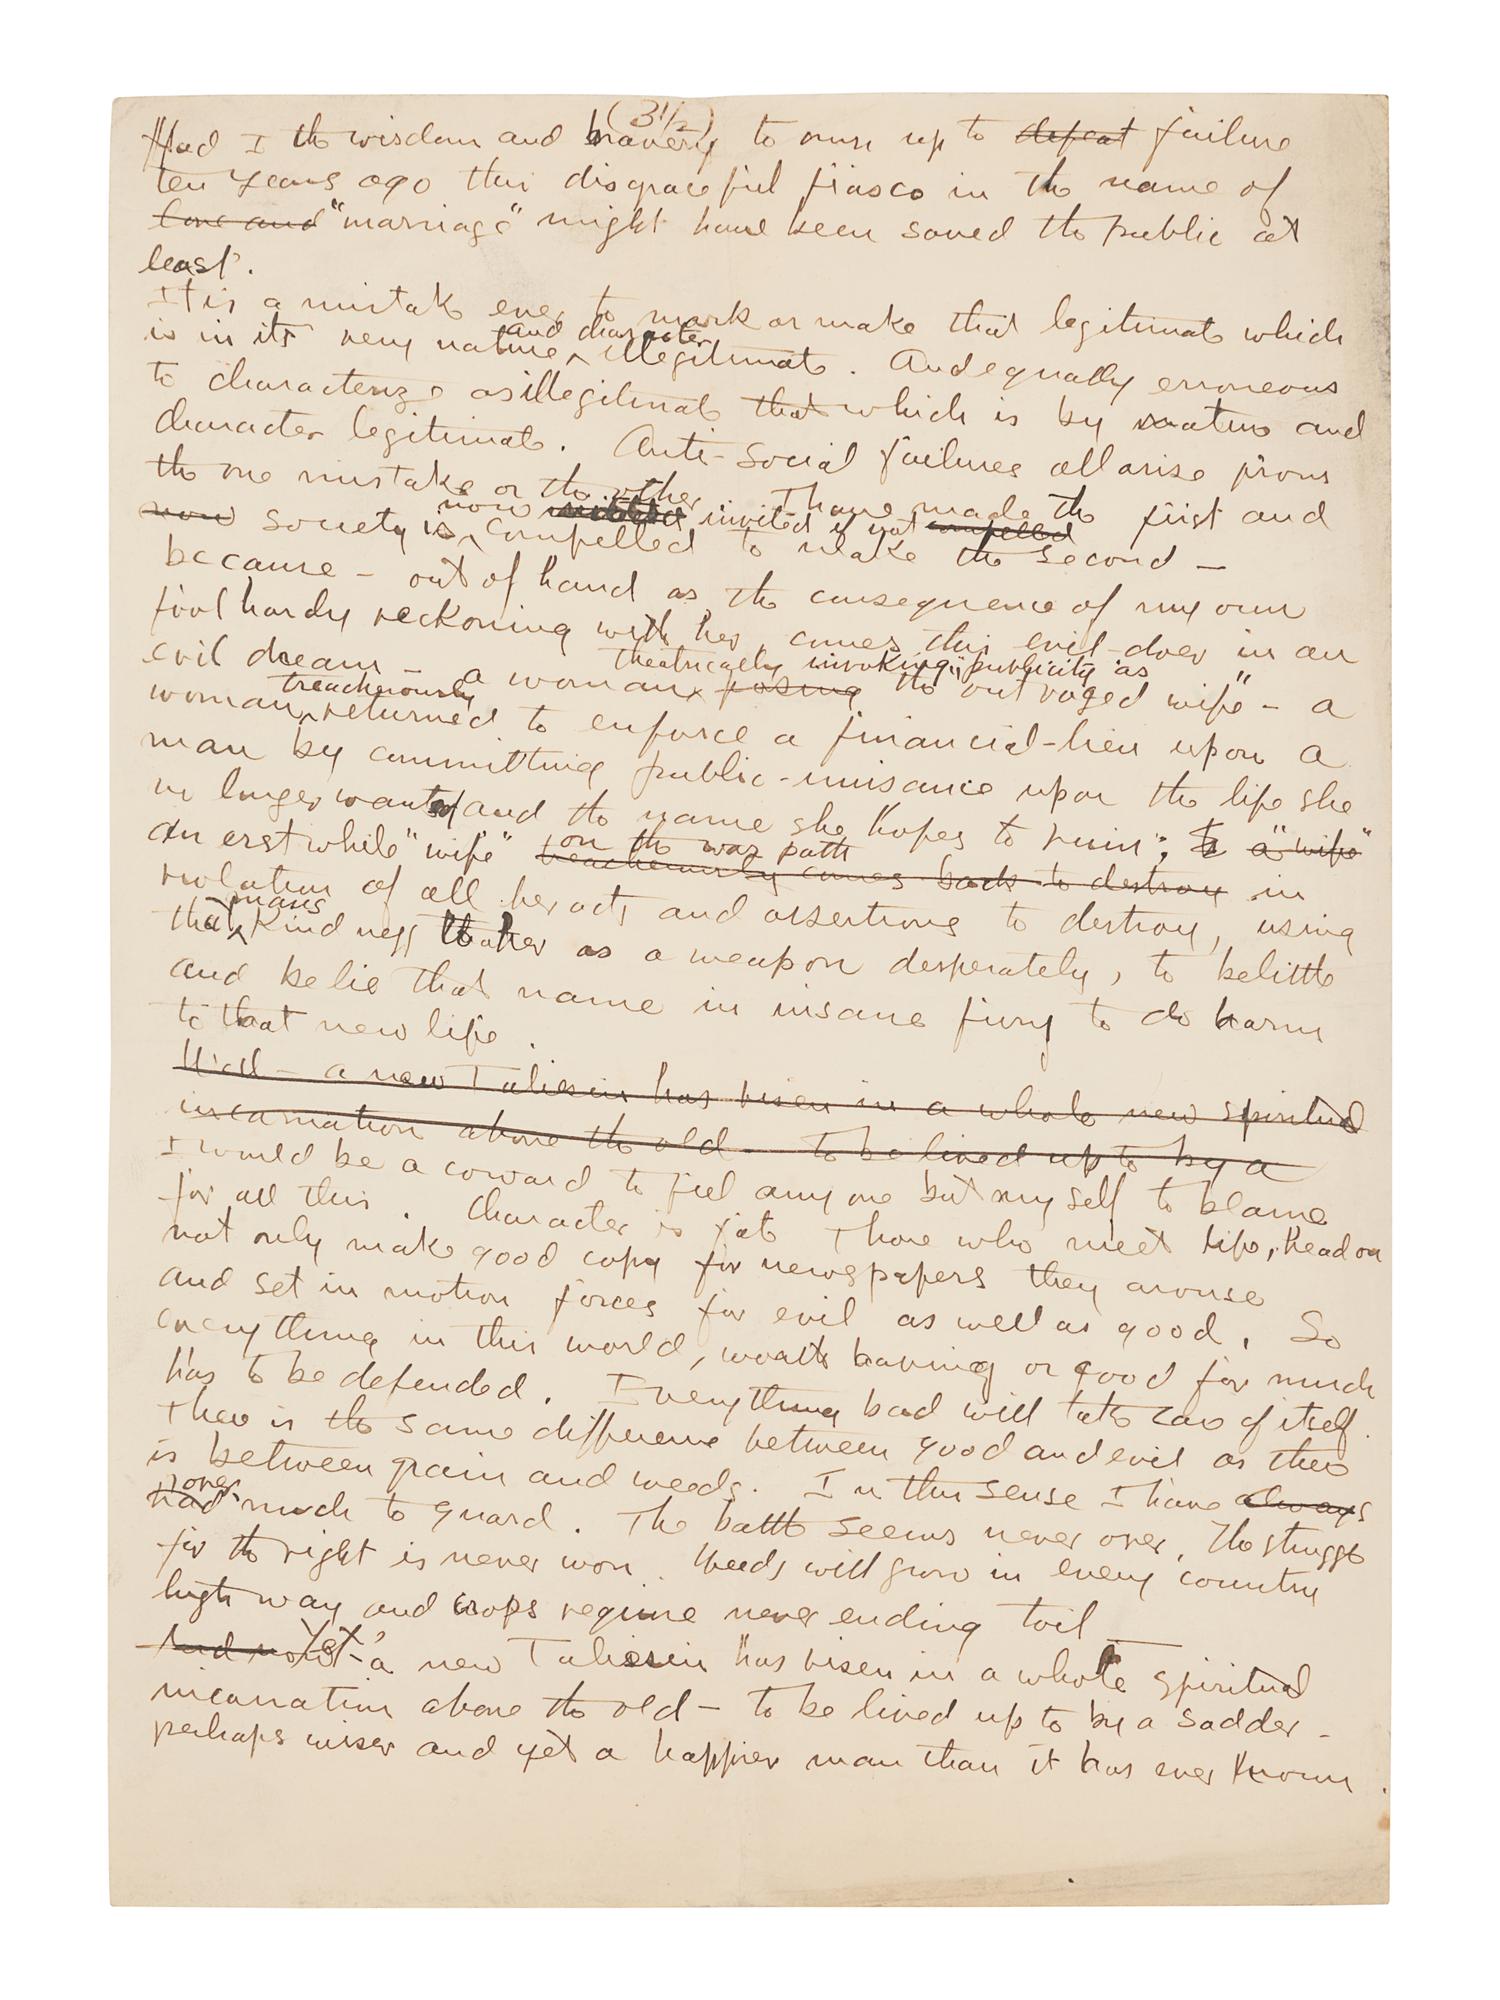 (3 1/2)
Had I the wisdom and bravery to own up to defeat failure
ten years ago this disgraceful fiasco in the name of
love and "marriage" might have been saved the public at
least.
It is a mistake ever to mark or make that legitimate which
and character
is in its very nature ^ illegitimate. And equally erroneous
to characterize as illegitimate that which is by nature and
character legitimate. Anti-social failures all arise from
the one mistake or the other. I have made the first and
now invited if not compelled
now society is ^ compelled to make the second —
because — out of hand as the consequence of my own
fool hardy reckoning with her, comes this evil-doer in an
theatrically invoking publicity as
evil dream — a woman ^ posing the "outraged wife" — a
treacherously
woman ^ returned to enforce a financial-lien upon a
man by committing public-nuisance upon the life she
no longer wanted and the name she hopes to ruin; a "wife"
on the war path
An erstwhile "wife" treacherously comes back to destroy in
violation of all her acts and assertions to destroy, using
mans
that ^ kindness to her as a weapon desperately, to belittle
and belie that name in insane fury to do harm
to that new life.
Well — a new Taliesin has risen in a whole new spiritual
incarnation above the old — to be lived up to by a
I would be a coward to feel anyone but myself to blame
for all this. Character is fate Those who meet life, head on
not only make good copy for newspapers they arouse
and set in motion forces for evil as well as good. So
everything in this world, worth having or good for much
has to be defended. Everything bad will take care of itself.
There is the same difference between good and evil as there
is between grain and weeds. In this sense I have always
over
had much to guard. The battle seems never over, the struggle
for the right is never won. Weeds will grow in every country
highway and crops require never ending toil —
And now Yet — a new Taliesin has risen in a whole spiritual
incarnation above the old — to be lived up to by a sadder —
perhaps wiser and yet a happier man than it has ever known.